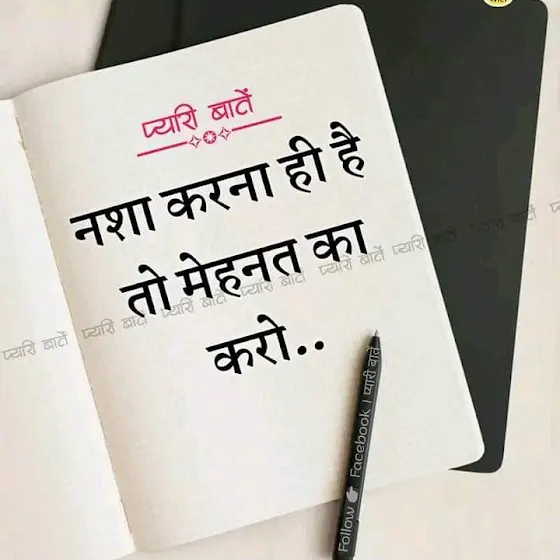 प्यारी बातें
नशा करना ही है
तो मेहनत का
करो..
प्यारी बातें प्यारी बातें प्यारी बातें प्यारी बातें प्यारी बातें प्यारी बातें प्यारी बातें
Follow Facebook । प्यारी बातें